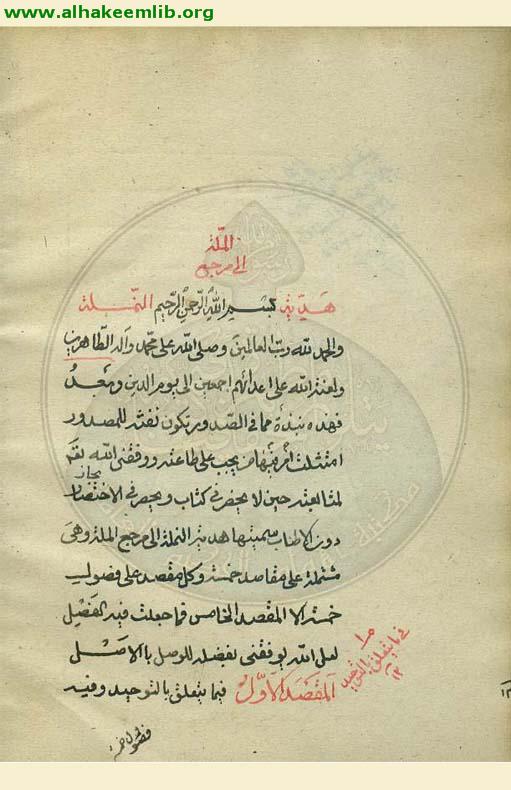 www.alhakeemlib.org
الملة
الى مرجع
هدية بسم الله الرحمن الرحيم النملة
والحمد لله رب العالمين وصلى الله على محمد وآله الطاهرين
ولعنة الله على اعدائهم اجمعين الى يوم الدين وبعد
فهذه نبذة مما في الصدور تكون نفثة للمصدور
امتثلت أمر من يجب على طاعته ووفقني الله
لمتابعته حين لا يحضرني كتاب ويحضرني الاختصار
دون الاطناب سميتها هدية النملة الى مرجع الملة وهى
مشتملة على مقاصد خمسة وكل مقصد على فصول
خمسة الا المقصد الخامس فما جعلت فيه الفصل
لعل الله يوفقني بفضله للوصل بالاصل
المقصد الاول فيما يتعلق بالتوحيد وفيه
فيما يتعلق بالتوحيد
فصول خمسة